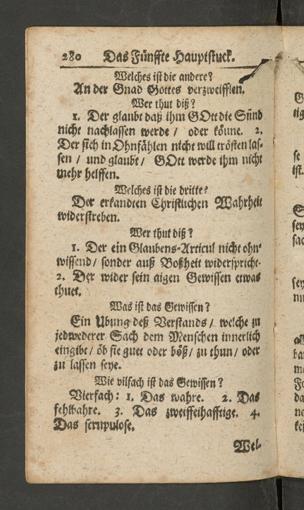 280 Das Fünffte Hauptstuck.
Welches ist die andere?
An der Gnad Gottes verzweifflen.
Wer thut diß?
1. Der glaubt daß ihm GOtt die Sünd
nicht nachlassen werde / oder könne. 2.
Der sich in Ohnfählen nicht will trösten las-
sen / und glaubt / GOtt werde ihm nicht
mehr helffen.
Welches ist die dritte?
Der erkandten Christlichen Wahrheit
widerstreben.
Wer thut diß?
1. Der ein Glaubens-Articul nicht ohn-
wissend / sonder auß Boßheit widerspricht.
2. Der wider sein aigen Gewissen etwas
thuet.
Was ist das Gewissen?
Ein Ubung deß Verstands / welche zu
jedwederer Sach dem Menschen innerlich
eingibt / ob sie guet oder böß / zu thun / oder
zu lassen seye.
Wie vilfach ist das Gewissen?
Vierfach: 1. Das wahre. 2. Das
fehlbahre. 3. Das zweiffelhafftige. 4.
Das scrupulose.
Wel-